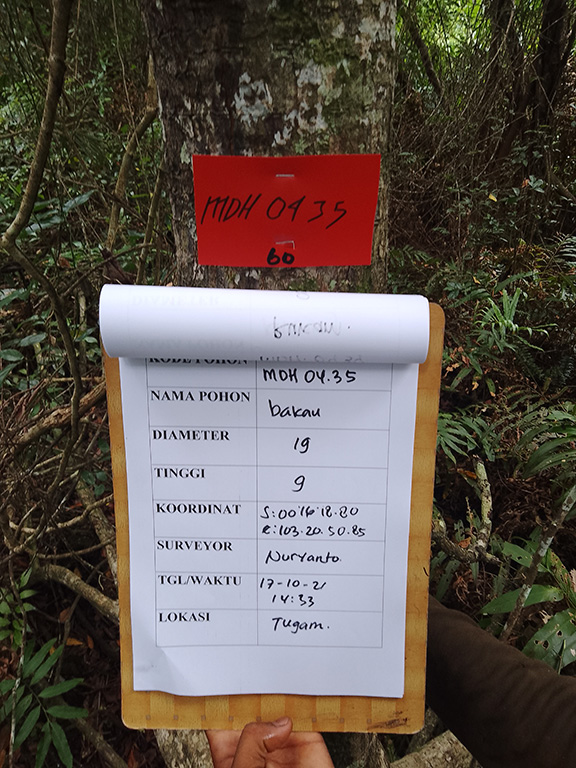 MDH 04 35
60
KODE POHON MDH 04.35
NAMA POHON bakau
DIAMETER 19
TINGGI 9
KOORDINAT S:00°16'18.80
E:103.20.50.85
SURVEYOR Nuryanto.
TGL/WAKTU 17-10-21
14:33
LOKASI Tugam.